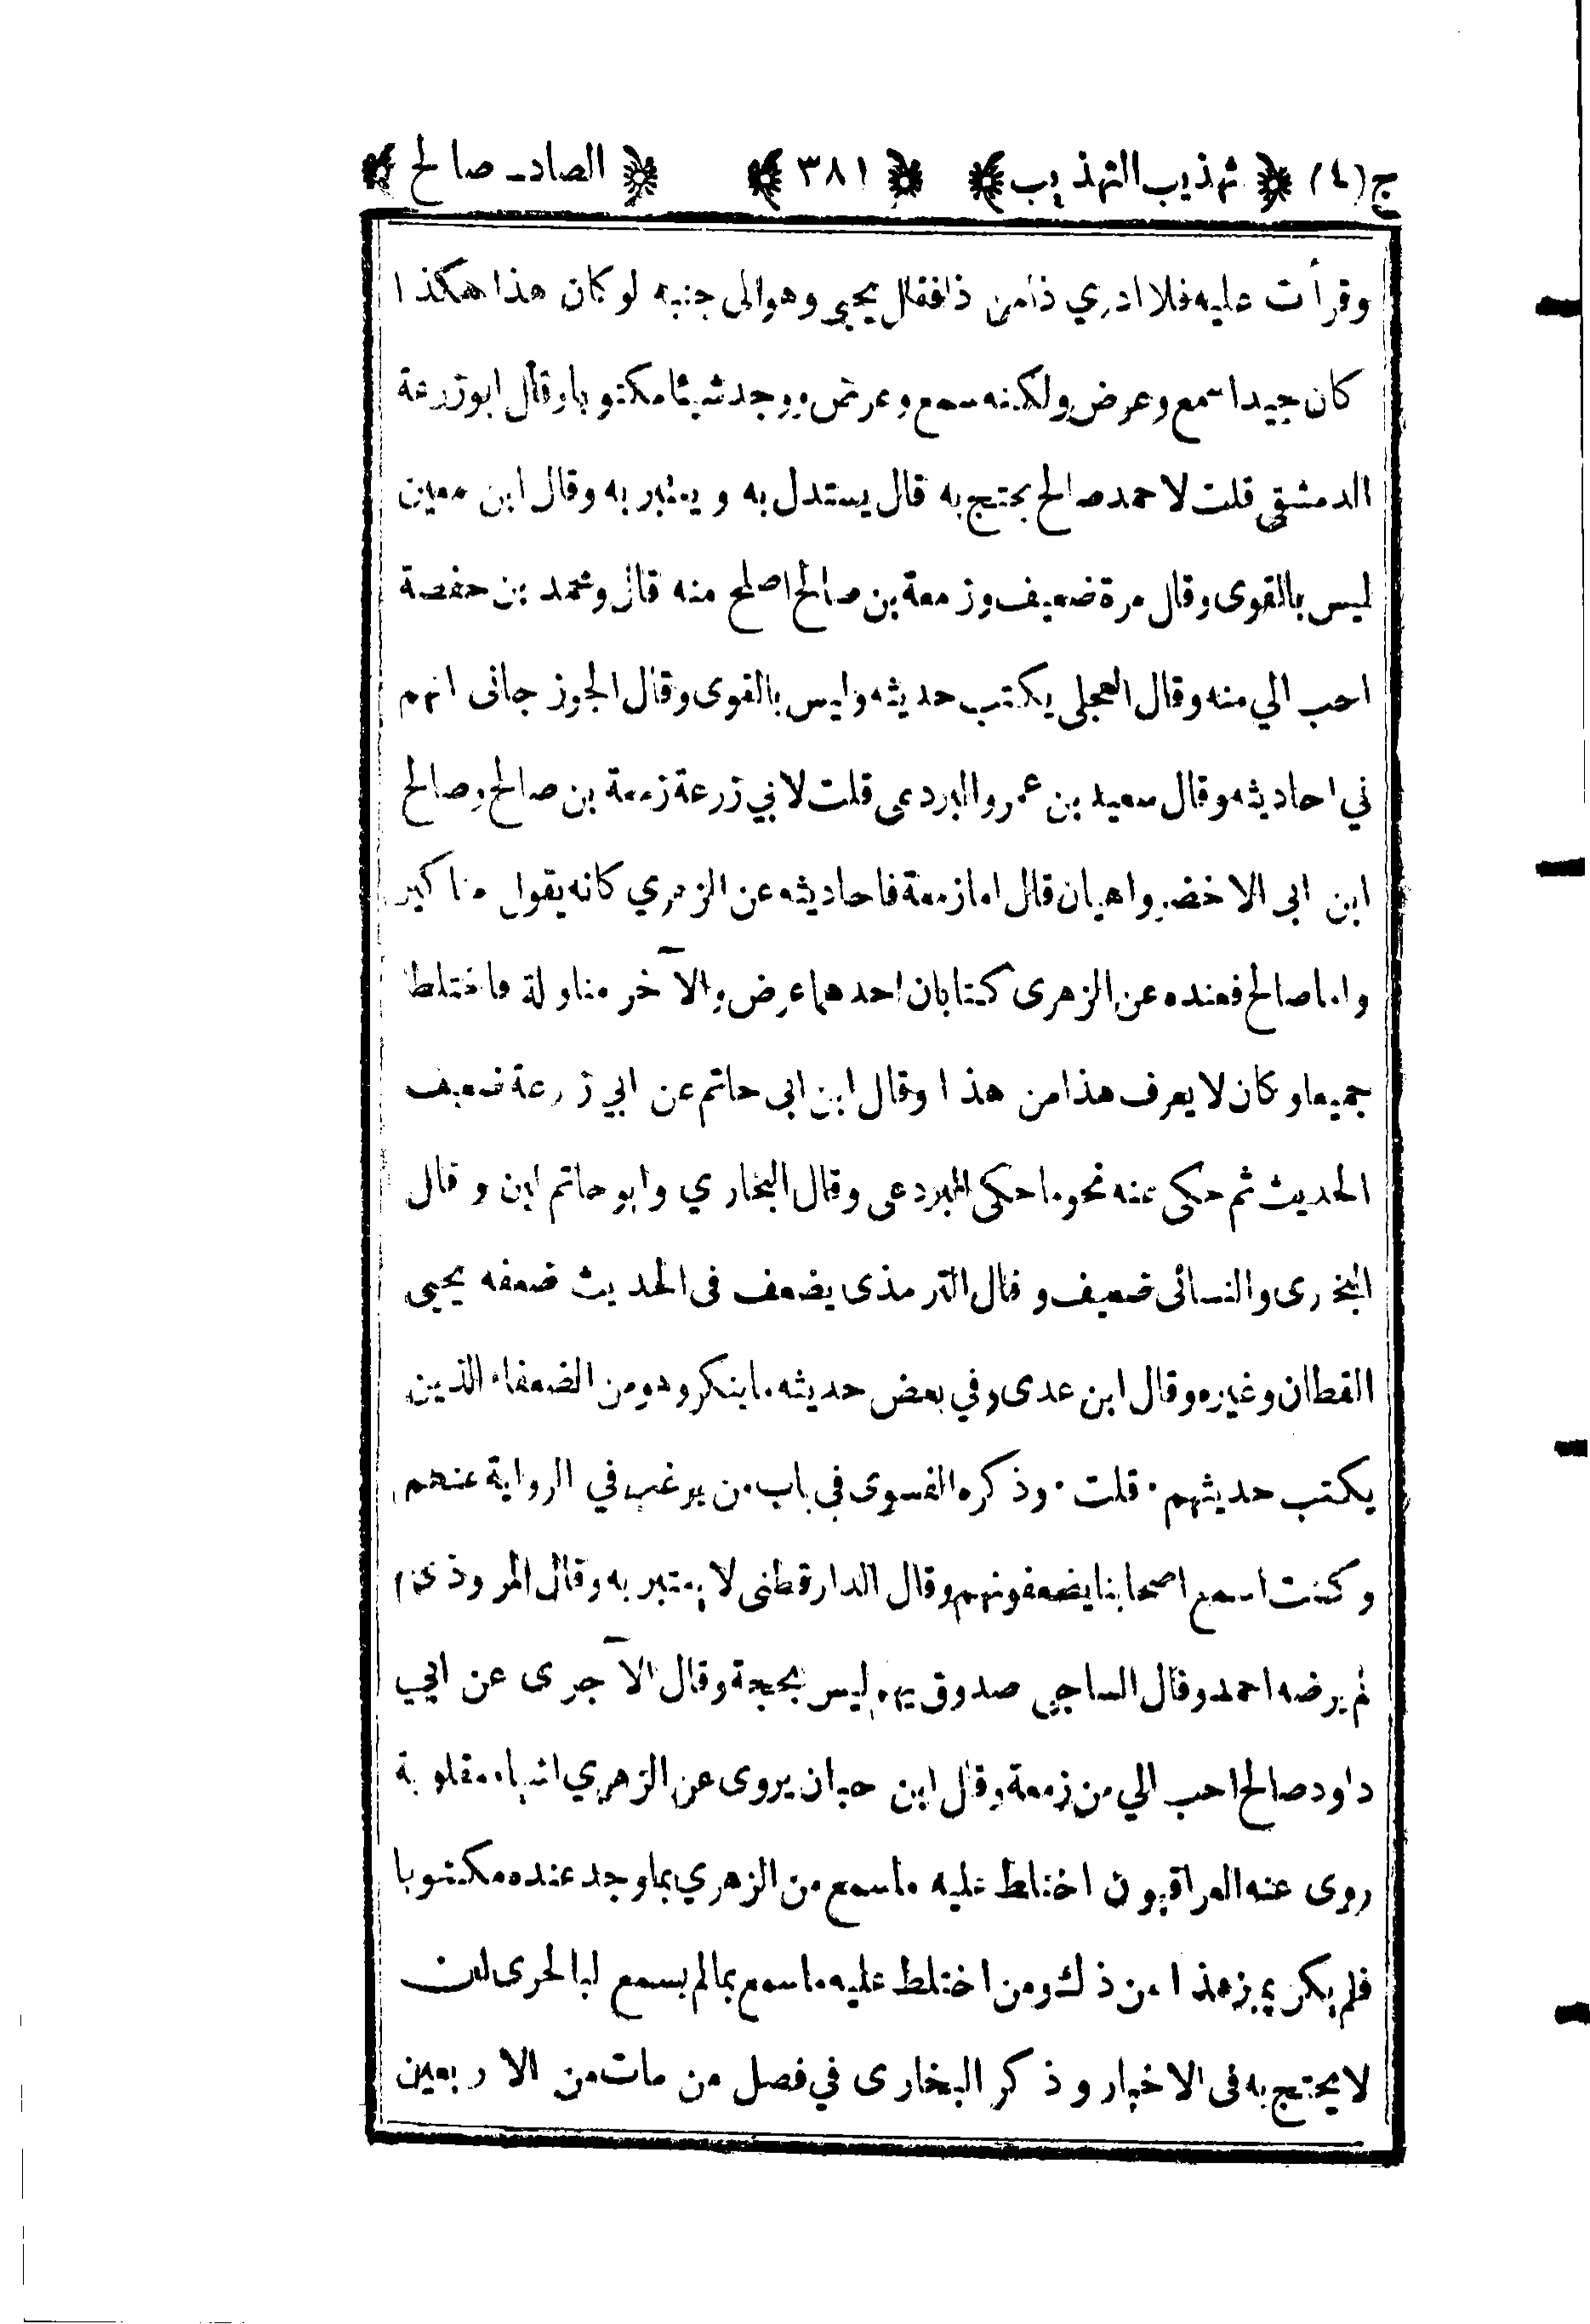 ج (٤) تهذيب التهذيب ٣٨١ الصاد - صالح
وقرأت عليه فلا ادري ذا من ذا فقال يحيى وهو الى جنبه لو كان هذا هكذا
كان جيدا سمع وعرض ولكنه سمع وعرض ووجد شيئا مكتوبا وقال ابو زرعة
الدمشقي قلت لاحمد صالح يحتج به قال يستدل به و يعتبر به وقال ابن معين
ليس بالقوى وقال مرة ضعيف وزمعة بن صالح اصلح منه قال ومحمد بن حفصة
احب الي منه وقال العجلى يكتب حديثه وليس بالقوى وقال الجوزجانى اتهم
في احاديثه وقال سعيد بن عمرو البردعى قلت لابي زرعة زمعة بن صالح وصالح
ابن ابى الاخضر واهيان قال اما زمعة فاحاديثه عن الزهري كانه يقول مناكير
واما صالح فعنده عن الزهرى كتابان احدهما عرض والآخر مناولة فاختلطا
جميعا وكان لا يعرف هذا من هذا وقال ابن ابى حاتم عن ابي زرعة ضعيف
الحديث ثم حكى عنه نحو ما حكى البردعى وقال البخاري وابو حاتم لين وقال
البخارى والنسائى ضعيف وقال الترمذى يضعف فى الحديث ضعفه يحيى
القطان وغيره وقال ابن عدى وفي بعض حديثه ما ينكر وهو من الضعفاء الذين
يكتب حديثهم · قلت · وذكره الفسوى في باب من يرغب في الرواية عنهم
وكنت اسمع اصحابنا يضعفونهم وقال الدارقطنى لا يعتبر به وقال المروذى
لم يرضه احمد وقال الساجي صدوق يهم ليس بحجة وقال الآجرى عن ابي
داود صالح احب الي من زمعة وقال ابن حبان يروى عن الزهري اشياء مقلوبة
روى عنه العراقيون اختلط عليه ما سمع من الزهري بما وجد عنده مكتوبا
فلم يكن يميز هذا من ذلك ومن اختلط عليه ما سمع بما لم يسمع لبا لحرى لان
لا يحتج به فى الاخبار وذكر البخارى في فصل من مات من الاربعين